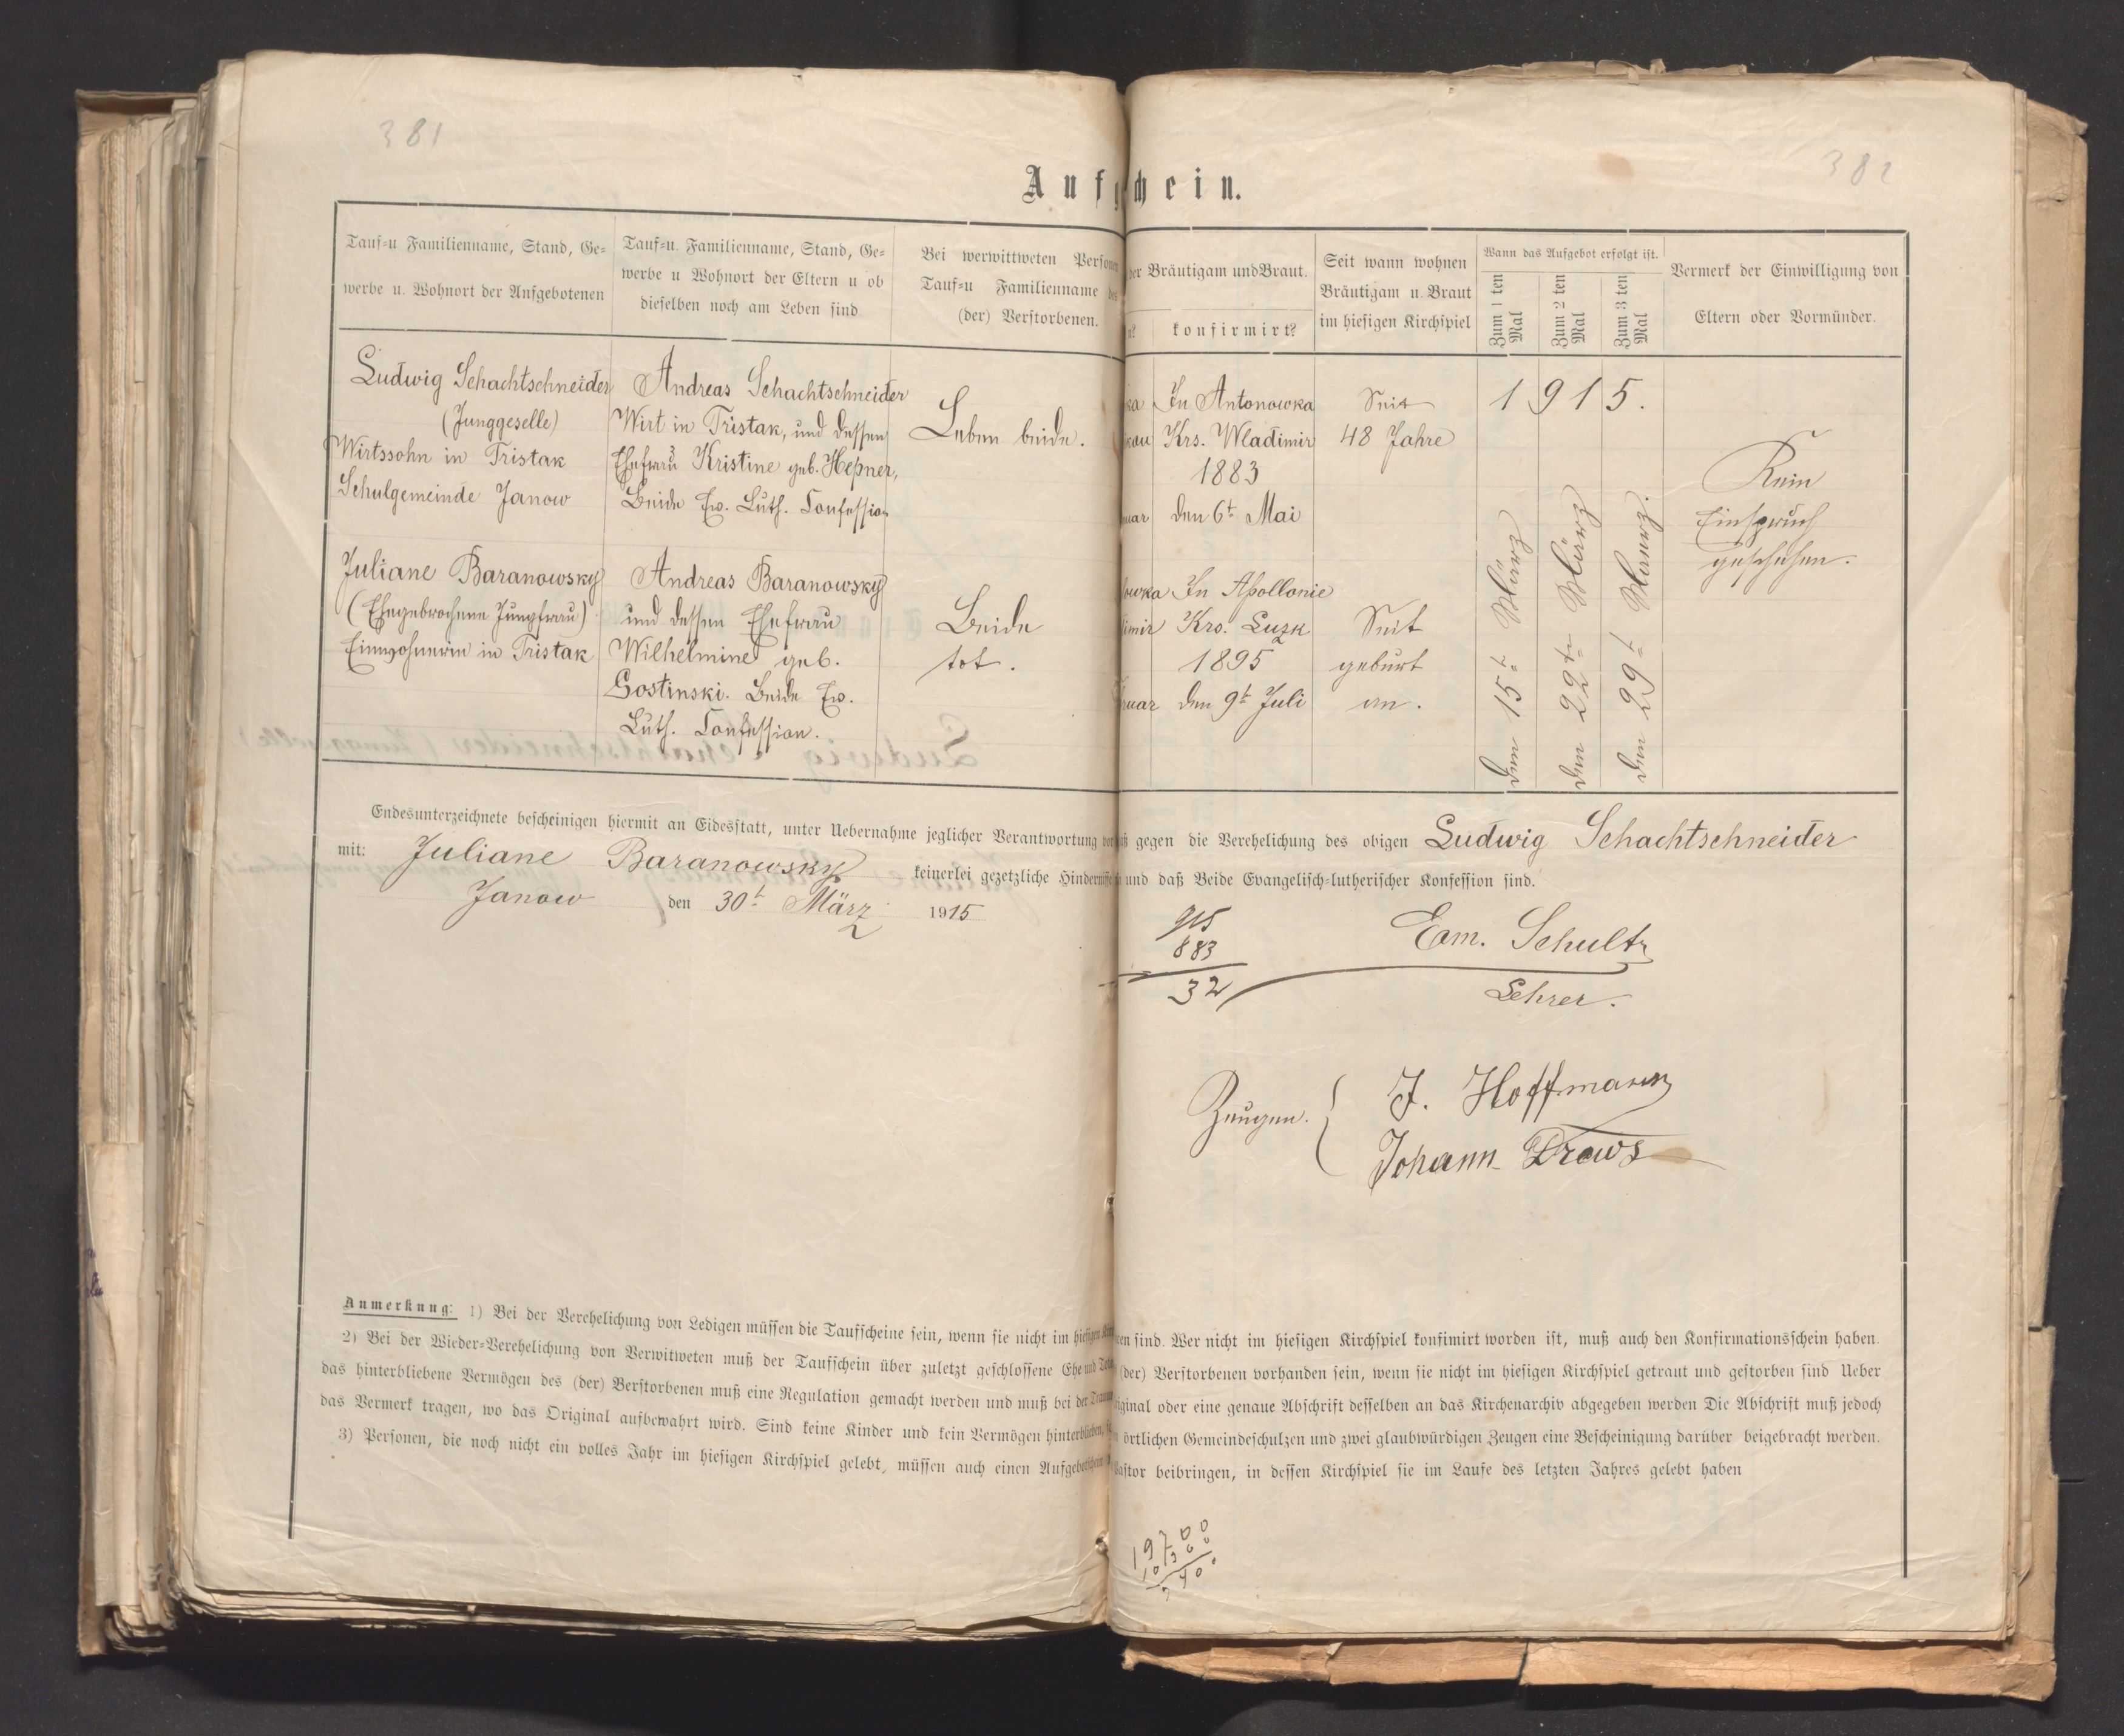 381
382
Aufg
chein.
Tauf=u Familienname, Stand, Ge=
werbe u. Wohnort der Aufgebotenen
Tauf=u. Familienname, Stand, Ge=
werbe u Wohnort der Eltern u ob
dieselben noch am Leben sind
Bei werwittweten Personen
Tauf=u Familienname des
(der) Verstorbenen.
der Bräutigam und Braut.
konfirmirt?
Seit wann wohnen
Bräutigam u. Braut
im hiesigen Kirchspiel
Wann das Aufgebot erfolgt ist.
Zum 1 ten
Mal
Zum 2 ten
Mal
Zum 3 ten
Mal
Vermerk der Einwilligung von
Eltern oder Vormünder.
Ludwig Schachtschneider
(Junggeselle)
Wirtssohn in Tristak
Schulgemeinde Janow
Andreas Schachtschneider
Wirt in Tristak, und dessen
Ehefrau Kristine geb. Hepner,
Beide Ev. Luth. Confession
Leben beide.
ka
kau
nuar
In Antonowka
Krs. Wladimir
1883
den 6t Mai
Seit
48 Jahre
1915.
den 15t März
den 22t März
den 29t Maerz.
Kein
Einspruch
geschehen.
Juliane Baranowsky
(Ehegebrochene Jungfrau)
Einwohnerin in Tristak
Andreas Baranowsky
und dessen Ehefrau
Wilhelmine geb.
Gostinski. Beide Ev.
Luth. Confession.
Beide
tot.
owka
imir
ruar
In Apollonie
Krs. Luzk
1895
den 9t Juli
Seit
geburt
an.
Endesunterzeichnete bescheinigen hiermit an Eidesstatt, unter Uebernahme jeglicher Verantwortung
gegen die Verehelichung des obigen Ludwig Schachtschneider
mit: Juliane Baranowsky keinerlei gezetzliche Hindernisse
und daß Beide Evangelisch=lutherischer Konfession sind.
Janow den 30t März 1915
915
883
32
Em. Schultz
Lehrer.
Zeugen.
J. Hoffmann
Johann Drews
Anmerkung: 1) Bei der Verehelichung von Ledigen müssen die Taufscheine sein, wenn sie nicht im hiesigen
ren sind. Wer nicht im hiesigen Kirchspiel konfimirt worden ist, muß auch den Konfirmationsschein haben.
2) Bei der Wieder=Verehelichung von Verwitweten muß der Taufschein über zuletzt geschlossene Ehe und
(der) Verstorbenen vorhanden sein, wenn sie nicht im hiesigen Kirchspiel getraut und gestorben sind Ueber
das hinterbliebene Vermögen des (der) Verstorbenen muß eine Regulation gemacht werden und muß bei der
iginal oder eine genaue Abschrift desselben an das Kirchenarchiv abgegeben werden Die Abschrift muß jedoch
das Vermerk tragen, wo das Original aufbewahrt wird. Sind keine Kinder und kein Vermögen hinterblieben,
örtlichen Gemeindeschulzen und zwei glaubwürdigen Zeugen eine Bescheinigung darüber beigebracht werden.
3) Personen, die noch nicht ein volles Jahr im hiesigen Kirchspiel gelebt, müssen auch einen Aufgebotschein
Pastor beibringen, in dessen Kirchspiel sie im Laufe des letzten Jahres gelebt haben